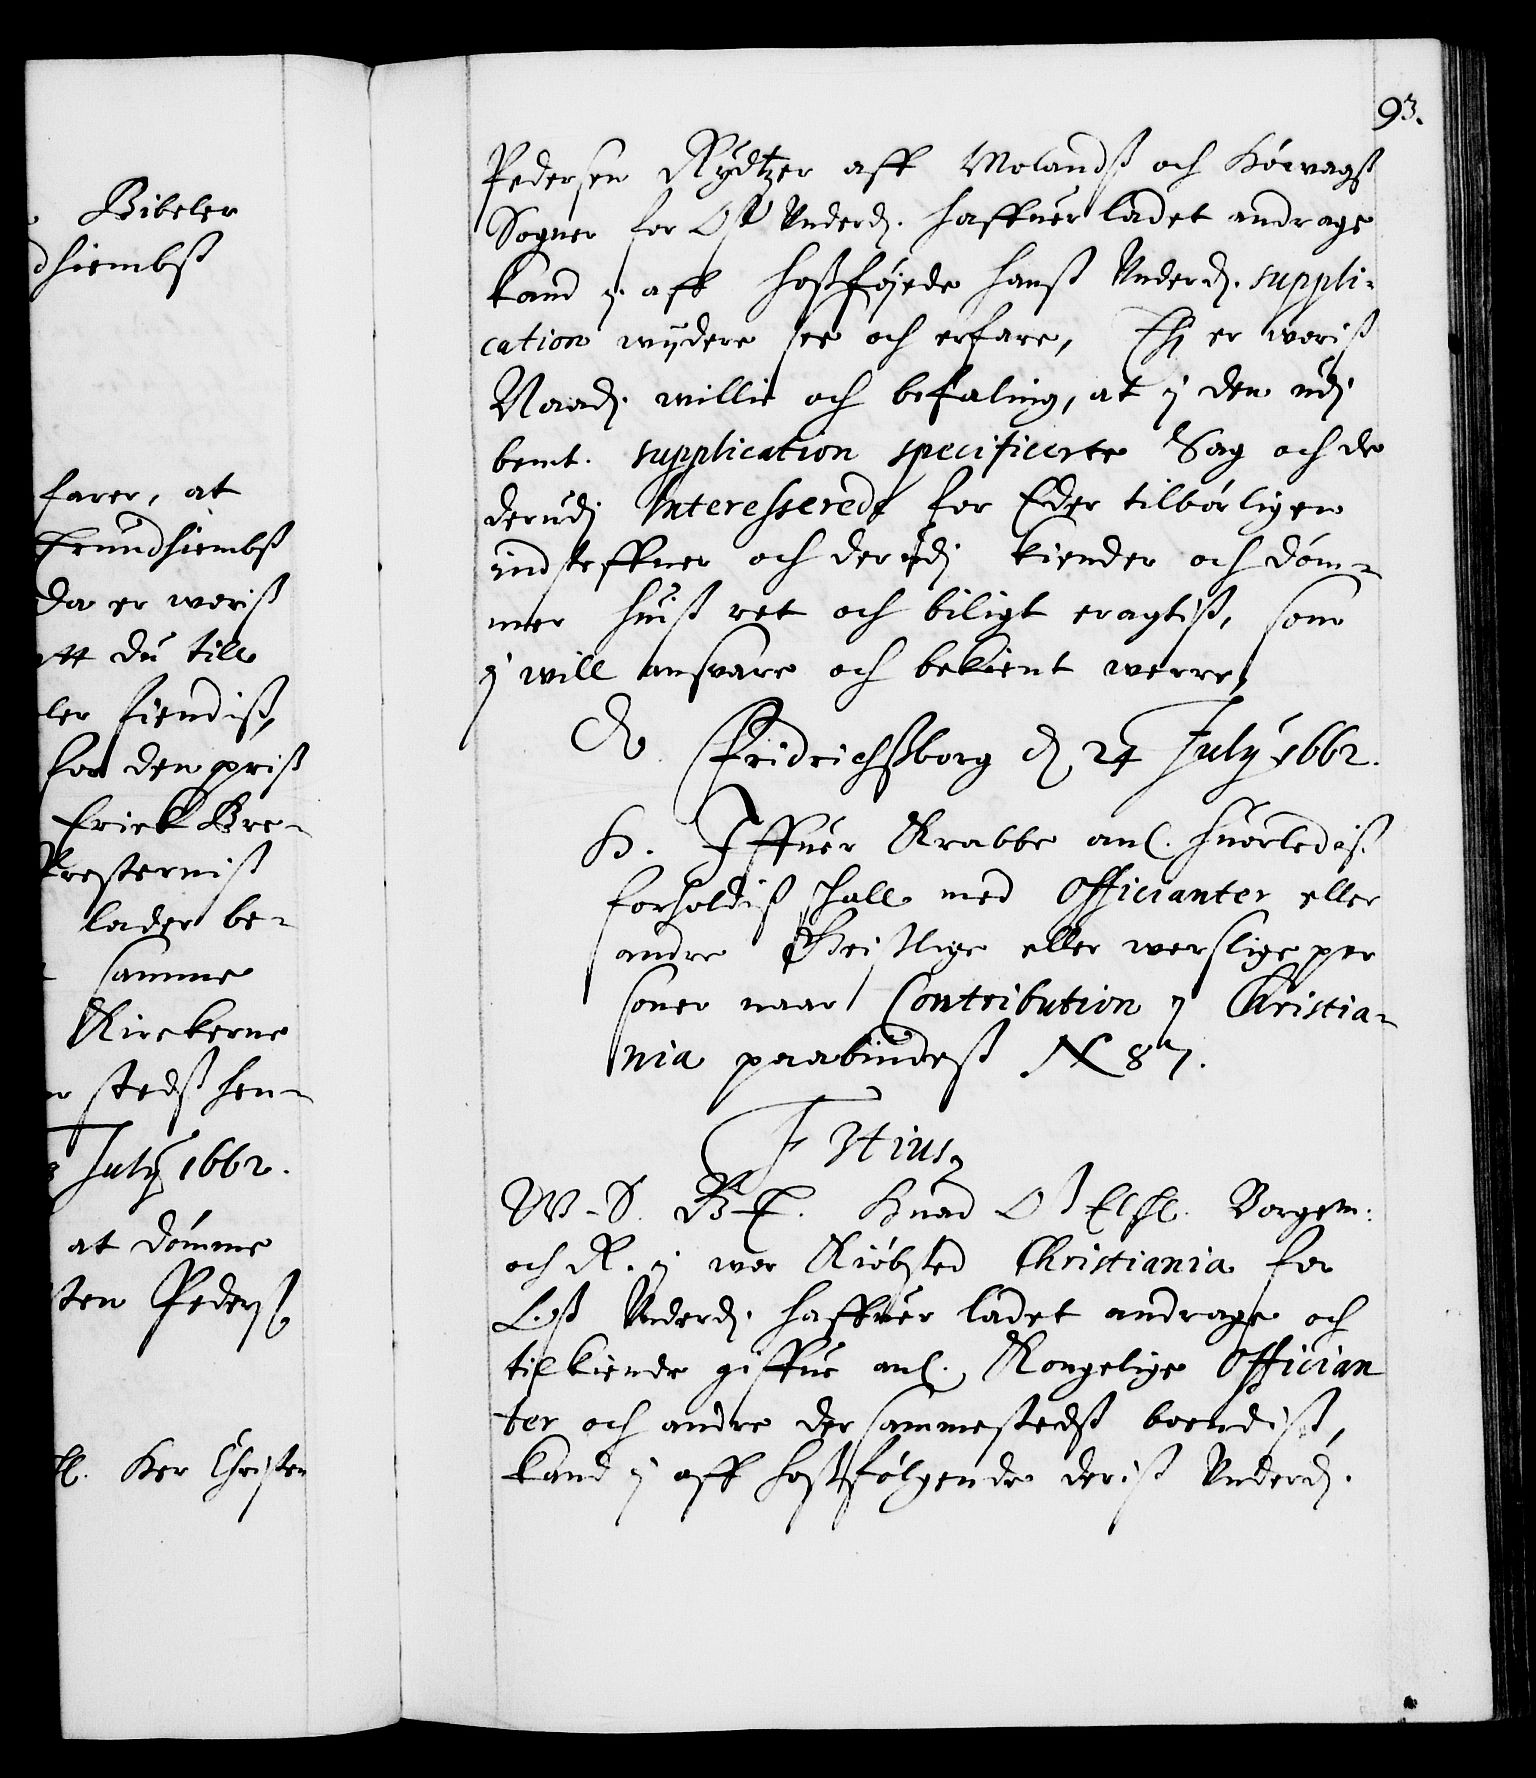 Bibeler
dhiembß
farer, at
Trundhiembß
da er woriß
att du till
ler findiß,
for den priß
Erick Bre-
Presterniß
lader be-
samme
Kirckerne
stedß hen-
July 1662.
at dömme
sten Pederß
Her Christen
93.
Pedersen Rydtzer aff Molandß och
Sogner for Oß Underd. haffuer ladet andrage
kand j aff hoßföyede hanß Underd. suppli-
cation wijdere see och erfare, Thi er woriß
Naad. willie och befaling, at j den udj
bemt. supplication specificerte Sag och de
derudj Interesserede for Eder tilbörligen
indsteffner och derudj kiender och döm-
mer huiß ret och biligt eragtiß, som
j will ansvare och bekient werre,
Fridrichßborg d. 24 July 1662.
H. Iffuer Krabbe anl. huorlediß
forholdiß skall med Officianter eller
andre Geistlige eller werslige per
soner naar Contribution j Christia-
nia paabindeß N 87.
F Stius,
W. S. G. T. Huad Oß Elskl. Borgem:
och R. j wor Kiöbsted Christiania for
Oß Underd. haffuer ladet andrage och
tilkiende giffue anl. Kongelige Offician
ter och andre der sammestedß boendiß,
kand j aff hoßfölgende deriß Underd.